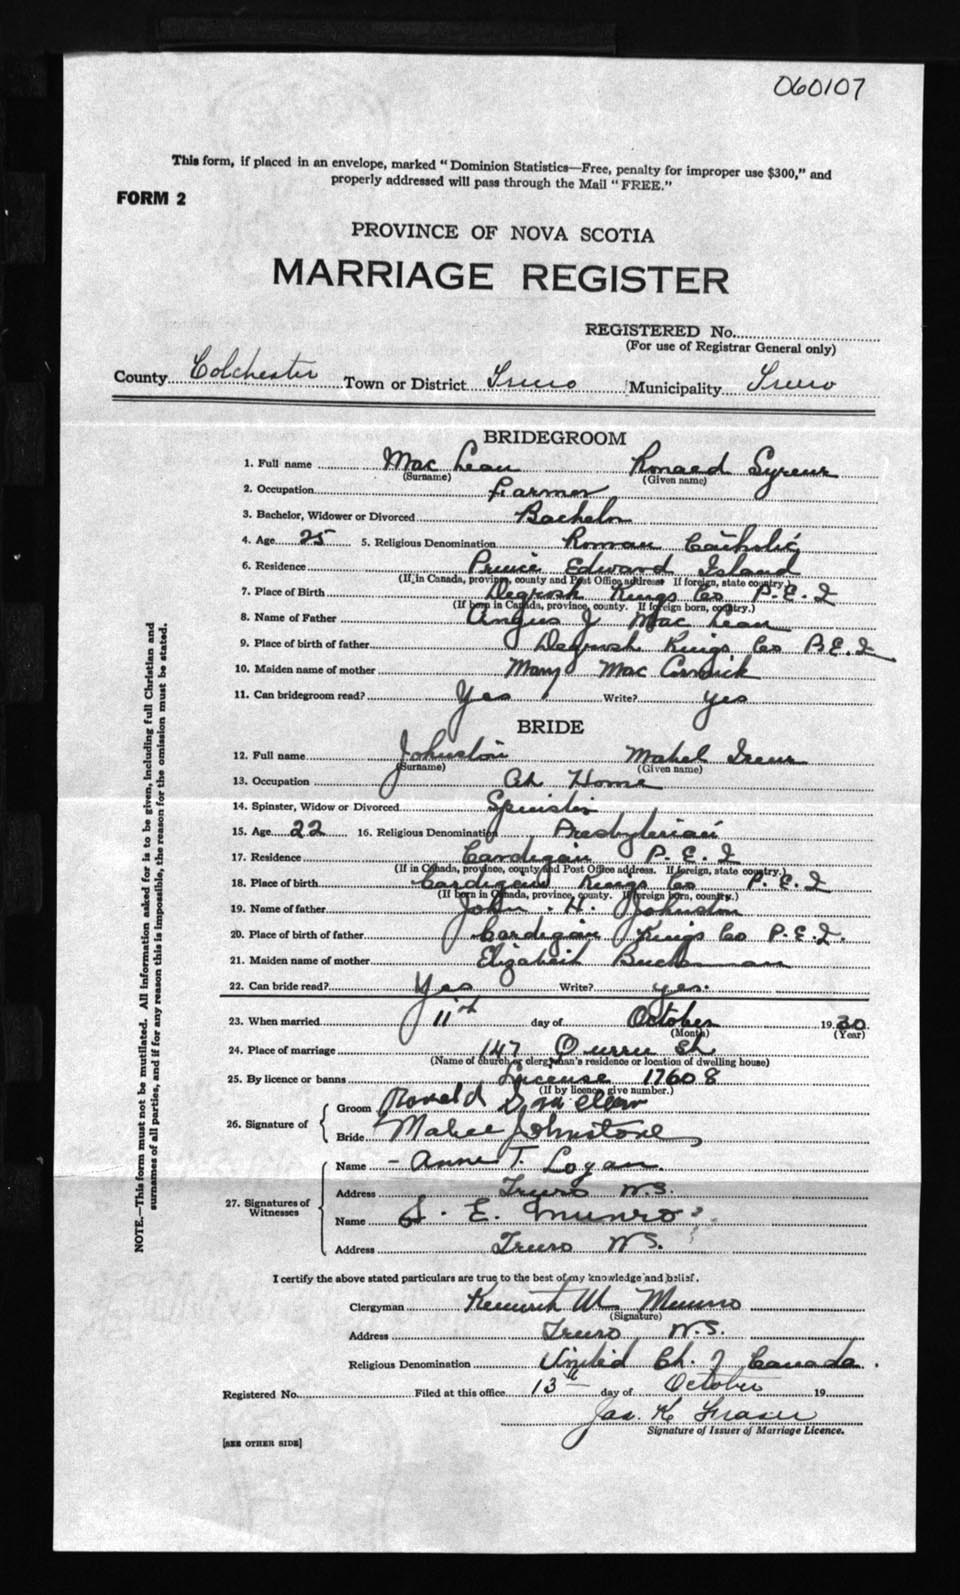 060107
This form, if placed in an envelope, marked "Dominion Statistics—Free, penalty for improper use $300," and
properly addressed will pass through the Mail "FREE."
FORM 2
PROVINCE OF NOVA SCOTIA
MARRIAGE REGISTER
REGISTERED No.
(For use of Registrar General only)
County Colchester Town or District Truro Municipality Truro
BRIDEGROOM
1. Full name Mac Lean Ronald
(Surname) (Given name)
2. Occupation Farmer
3. Bachelor, Widower or Divorced Bachelor
4. Age 25 5. Religious Denomination Roman Catholic
6. Residence Prince Edward Island
(If in Canada, province, county and Post Office address. If foreign, state country.)
7. Place of Birth Kings Co P.E.I
(If born in Canada, province, county. If foreign born, country.)
8. Name of Father Angus J Mac Lean
9. Place of birth of father Kings Co P.E.I
10. Maiden name of mother Mary Mac Cormick
11. Can bridegroom read? Yes Write? yes
BRIDE
12. Full name Johnston Mabel Irene
(Surname) (Given name)
13. Occupation At Home
14. Spinster, Widow or Divorced Spinster
15. Age 22 16. Religious Denomination Presbyterian
17. Residence Cardigan P.E.I
(If in Canada, province, county and Post Office address. If foreign, state country.)
18. Place of birth Cardigan Kings Co P.E.I
(If born in Canada, province, county. If foreign born, country.)
19. Name of father John H. Johnston
20. Place of birth of father Cardigan Kings Co P.E.I.
21. Maiden name of mother Elizabeth Buchanan
22. Can bride read? Yes Write? yes.
23. When married 11th day of October 1930
(Month) (Year)
24. Place of marriage 147 Queen St
(Name of church or clergyman's residence or location of dwelling house)
25. By licence or banns License 17608
(If by licence, give number.)
26. Signature of
Groom Ronald
Bride Johnstone
27. Signatures of Witnesses
Name - Anne T. Logan.
Address Truro N.S.
Name S. E. Munro
Address Truro N.S.
I certify the above stated particulars are true to the best of my knowledge and belief.
Clergyman Kenneth M. Munro
(Signature)
Address Truro N.S.
Religious Denomination United Ch. of Canada.
Registered No. Filed at this office 13th day of October 19
Jas. K Fraser
Signature of Issuer of Marriage Licence.
[SEE OTHER SIDE]
NOTE.—This form must not be mutilated. All information asked for is to be given, including full Christian and
surnames of all parties, and if for any reason this is impossible, the reason for the omission must be stated.